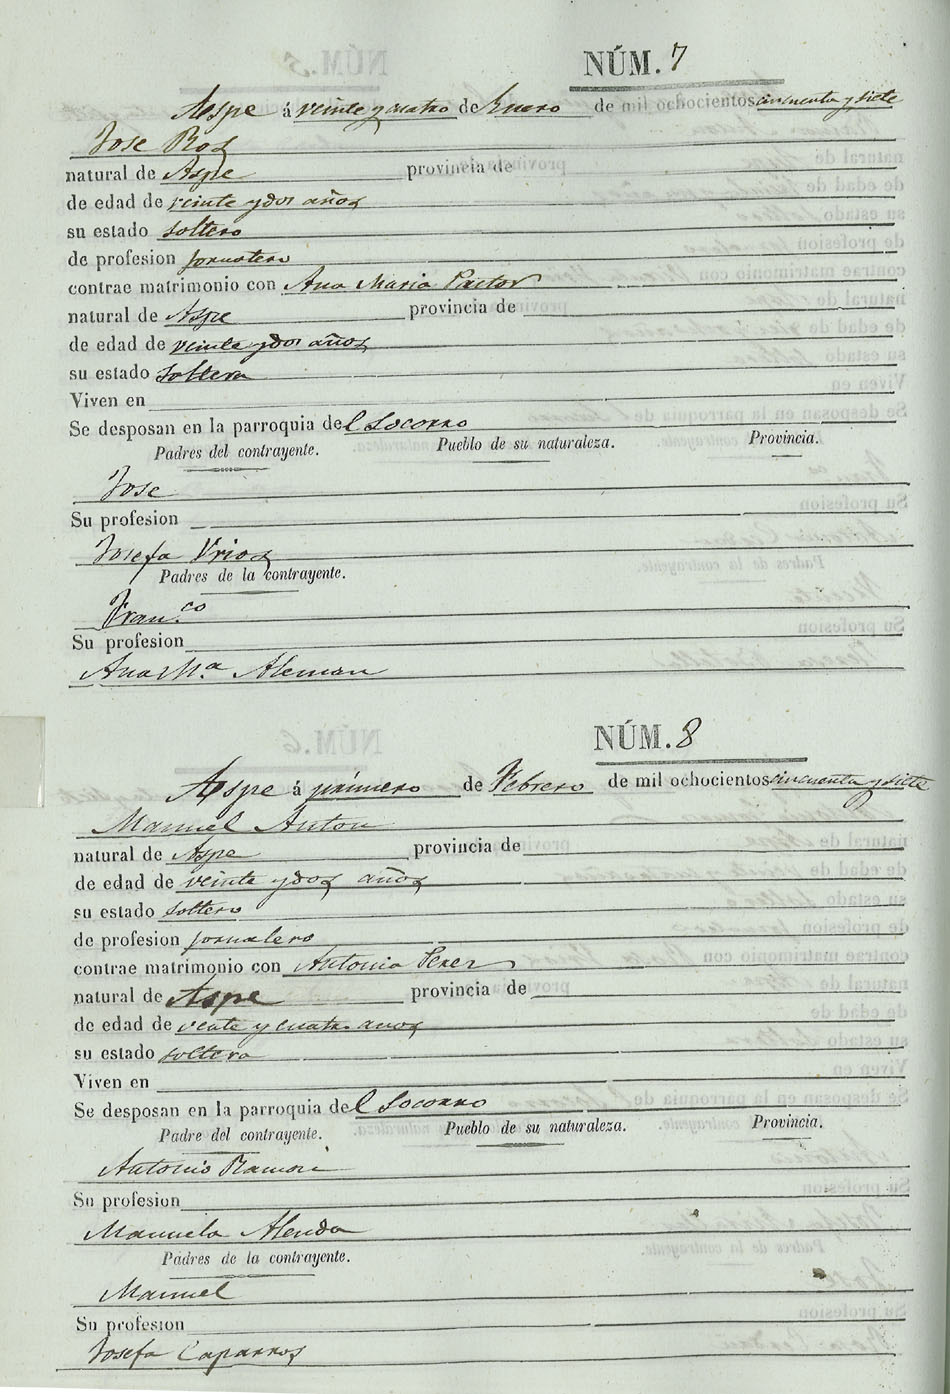 NÚM. 7
Aspe á veinte y cuatro de Enero de mil ochocientos cincuenta y siete
Jose Ros
natural de Aspe provincia de
de edad de veinte y dos años
su estado soltero
de profesion jornalero
contrae matrimonio con Ana Maria Pastor
natural de Aspe provincia de
de edad de veinte y dos años
su estado soltera
Viven en
Se desposan en la parroquia del Socorro
Padres del contrayente. Pueblo de su naturaleza. Provincia.
Jose
Su profesion
Josefa Vrios
Padres de la contrayente.
Fran.co
Su profesion
Ana M.a Aleman
NÚM. 8
Aspe á primero de Febrero de mil ochocientos cincuenta y siete
Manuel Anton
natural de Aspe provincia de
de edad de veinte y dos años
su estado soltero
de profesion jornalero
contrae matrimonio con Antonia Perez
natural de Aspe provincia de
de edad de veinte y cuatro años
su estado soltera
Viven en
Se desposan en la parroquia del Socorro
Padre del contrayente. Pueblo de su naturaleza. Provincia.
Antonio Ramon
Su profesion
Manuela Alenda
Padres de la contrayente.
Manuel
Su profesion
Josefa Caparros